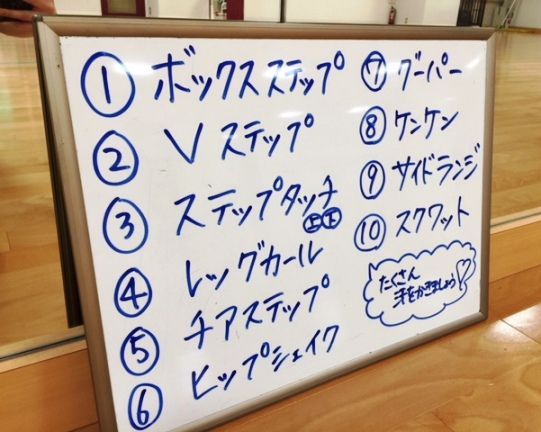 ① ボックスステップ
② Vステップ
③ ステップタッチ
上下
④ レッグカール
⑤ チアステップ
⑥ ヒップシェイク
⑦ グーパー
⑧ ケンケン
⑨ サイドランジ
⑩ スクワット
たくさん
汗をかきましょう♡